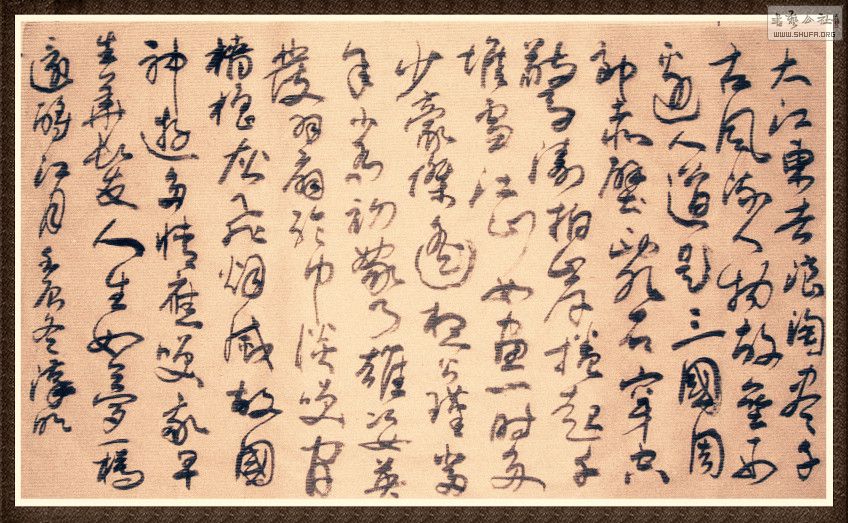 大江東去浪淘盡千
古風流人物故壘西
邊人道是三國周
郎赤壁亂石穿空
驚濤拍岸捲起千
堆雪江山如畫一時多
少豪傑遙想公瑾當
年小喬初嫁了雄姿英
發羽扇綸巾談笑間
檣櫓灰飛烟滅故國
神遊多情應笑我早
生華髮人生如夢一樽
還酹江月 壬辰冬
公社
WWW.SHUFA.ORG